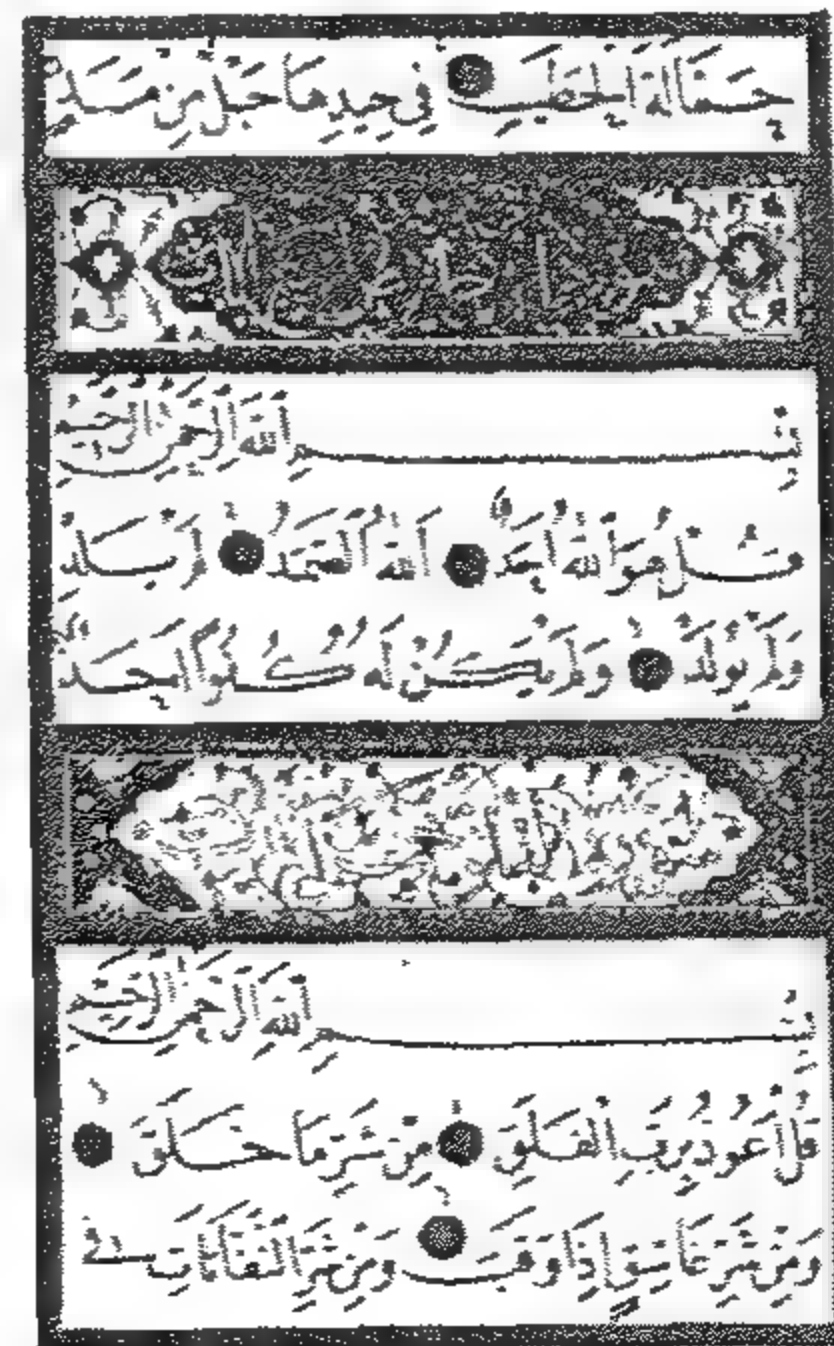 حمالة الحطب في جيدها حبل من مسد
بسم الله الرحمن الرحيم
قل هو الله أحد الله الصمد لم يلد
ولم يولد ولم يكن له كفوا أحد
بسم الله الرحمن الرحيم
قل أعوذ برب الفلق من شر ما خلق
ومن شر غاسق إذا وقب ومن شر النفاثات في